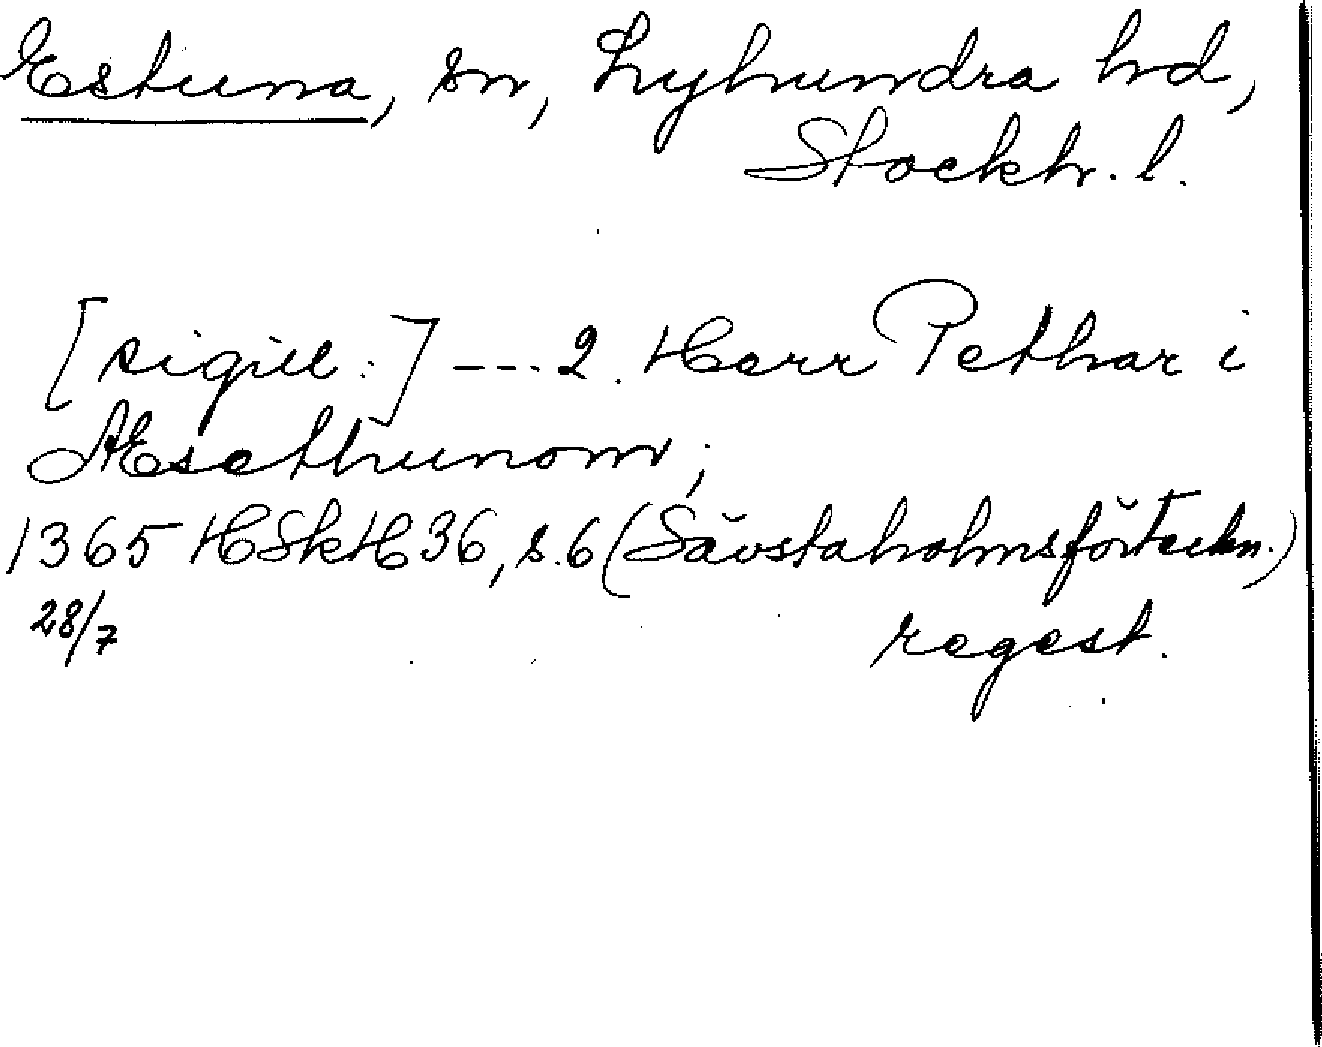 Estuna, sn, Lyhundra hd,
Stockh. l.
[sigill:] --- 2. Herr Pethar i
Æsethunom;
1365 HSkH 36, s. 6 (Sävstaholmsförteckn.)
28/7 regest.